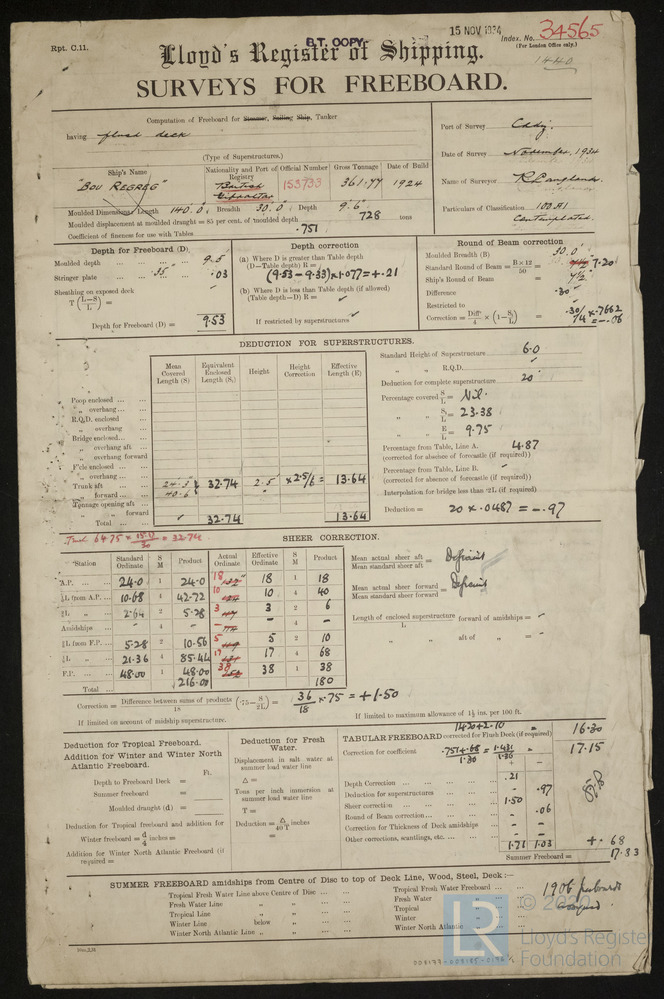 Rpt. C.11.
15 NOV 1934
Index. No. 34565
(For London Office only.)
B.T. COPY
1440
Lloyd's Register of Shipping.
SURVEYS FOR FREEBOARD.
Computation of Freeboard for Steamer, Sailing Ship, Tanker
having flush deck
(Type of Superstructures.)
Port of Survey
Date of Survey November, 1934
Name of Surveyor
Particulars of Classification 100 A1
Contemplated.
Ship's Name
"BOU REGREG"
Nationality and Port of Registry
British
Gibraltar
Official Number
153733
Gross Tonnage
361.77
Date of Build
1924
Moulded Dimensions: Length 140.0 Breadth 30.0 Depth 9.6
Moulded displacement at moulded draught = 85 per cent. of moulded depth 728 tons
Coefficient of fineness for use with Tables .751
Depth for Freeboard (D)
Moulded depth 9.5
Stringer plate .35" .03
Sheathing on exposed deck
T (L-S/L) =
Depth for Freeboard (D) = 9.53
Depth correction
(a) Where D is greater than Table depth
(D—Table depth) R =
(9.53-9.33)×1.077=+.21
(b) Where D is less than Table depth (if allowed)
(Table depth—D) R =
If restricted by superstructures
Round of Beam correction
Moulded Breadth (B) 30.0
Standard Round of Beam = B×12/50 = 7.20
Ship's Round of Beam = 7½
Difference .30
Restricted to
Correction = Diff/4 × (1-S/L) = .30/4 × .7662 = -.06
DEDUCTION FOR SUPERSTRUCTURES.
Mean Covered Length (S)
Equivalent Enclosed Length (S₁)
Height
Height Correction
Effective Length (E)
Poop enclosed
" overhang
R.Q.D. enclosed
" overhang
Bridge enclosed
" overhang aft
" overhang forward
F'cle enclosed
" overhang
Trunk aft 24.3 32.74 2.5 ×2.5/6 = 13.64
" forward 40.6
Tonnage opening aft
" " forward
Total 32.74 13.64
Standard Height of Superstructure 6.0
" " R.Q.D.
Deduction for complete superstructure 20
Percentage covered S/L = Nil.
" " S₁/L = 23.38
" " E/L = 9.75
Percentage from Table, Line A. 4.87
(corrected for absence of forecastle (if required))
Percentage from Table, Line B.
(corrected for absence of forecastle (if required))
Interpolation for bridge less than .2L (if required)
Deduction = 20 × .0487 = -.97
64.75 × 15.17/30 = 32.74
SHEER CORRECTION.
Station
Standard Ordinate
S M
Product
Actual Ordinate
Effective Ordinate
S M
Product
A.P. 24.0 1 24.0 18 18 1 18
⅙L from A.P. 10.68 4 42.72 10 10 4 40
⅓L " 2.64 2 5.28 3 3 2 6
Amidships - 4 - - - 4 -
⅓L from F.P. 5.28 2 10.56 5 5 2 10
⅙L " 21.36 4 85.44 17 17 4 68
F.P. 48.00 1 48.00 38 38 1 38
Total 216.00 180
Mean actual sheer aft / Mean standard sheer aft = Deficient
Mean actual sheer forward / Mean standard sheer forward = Deficient
Length of enclosed superstructure forward of amidships / L =
" aft of " =
Correction = Difference between sums of products/18 (.75-S/2L) = 36/18 × .75 = +1.50
If limited on account of midship superstructure.
If limited to maximum allowance of 1½ ins. per 100 ft.
Deduction for Tropical Freeboard.
Addition for Winter and Winter North Atlantic Freeboard.
Ft.
Depth to Freeboard Deck =
Summer freeboard =
Moulded draught (d) =
Deduction for Tropical freeboard and addition for
Winter freeboard = d/4 inches =
Addition for Winter North Atlantic Freeboard (if required) =
Deduction for Fresh Water.
Displacement in salt water at summer load water line
Δ =
Tons per inch immersion at summer load water line
T =
Deduction = Δ/40T inches
=
14.20+2.10
TABULAR FREEBOARD corrected for Flush Deck (if required) = 16.30
Correction for coefficient .751+.68/1.36 = 1.431/1.36 = 17.15
+ -
Depth Correction .21
Deduction for superstructures - .97
Sheer correction 1.50 -
Round of Beam correction - .06
Correction for Thickness of Deck amidships - -
Other corrections, scantlings, etc. - -
1.71 1.03 +.68
Summer Freeboard = 17.83
SUMMER FREEBOARD amidships from Centre of Disc to top of Deck Line, Wood, Steel, Deck:—
Tropical Fresh Water Line above Centre of Disc
Fresh Water Line " "
Tropical Line " "
Winter Line below "
Winter North Atlantic Line " "
Tropical Fresh Water Freeboard
Fresh Water "
Tropical "
Winter "
Winter North Atlantic "
1906 freeboards
assigned
© 2020
LR
Lloyd's Register
Foundation